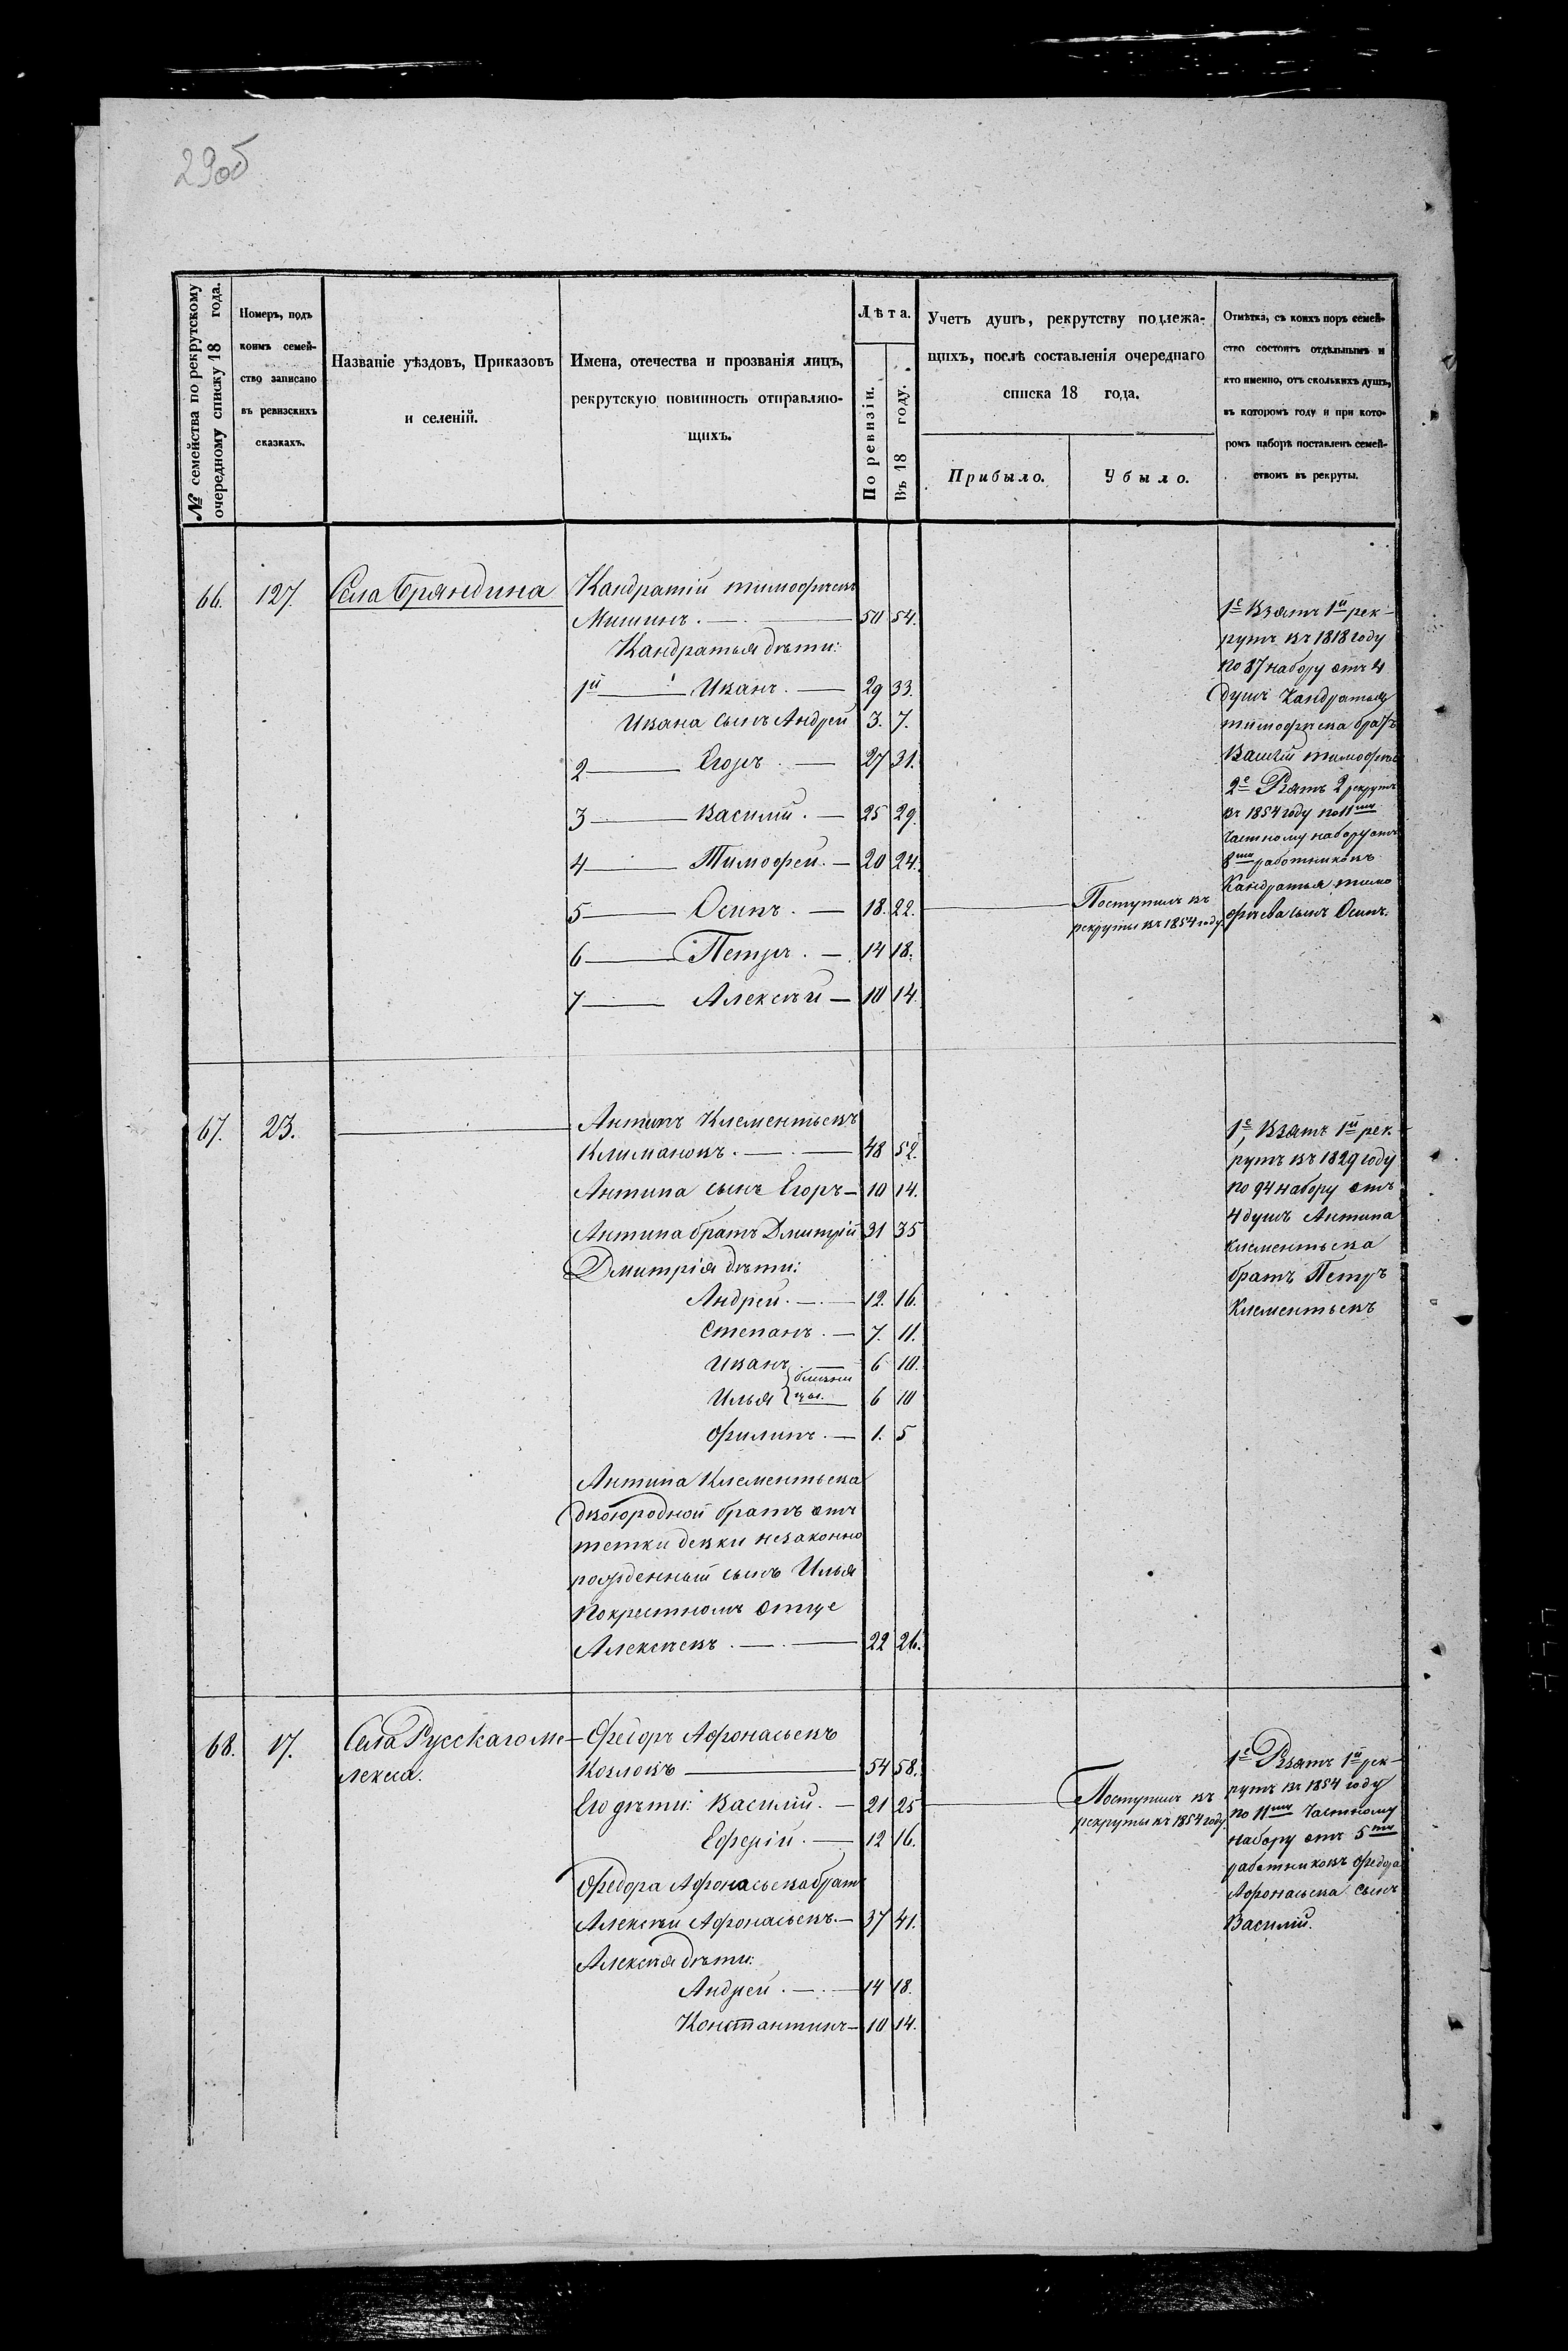 29об
№ семейства по рекрутскому
очередному списку 18 года.
Номеръ, подъ
коимъ семей-
ство записано
въ ревизскихъ
сказкахъ.
Названіе уѣздовъ, Приказовъ
и селеній.
Имена, отечества и прозванія лицъ,
рекрутскую повинность отправляю-
щихъ.
Лѣта.
По ревизіи.
Въ 18 году.
Учетъ душъ, рекрутству подлежа-
щихъ, послѣ составленія очереднаго
списка 18 года.
Прибыло.
Убыло.
Отмѣтка, съ коихъ поръ семей-
ство состоитъ отдѣльнымъ и
кто именно, отъ сколькихъ душъ,
въ которомъ году и при кото-
ромъ наборѣ поставленъ семей-
ствомъ въ рекруты.
66. 127. Села Бряндина Кандратий тимофѣевъ
Мишинъ. 50 54.
Кандратья дѣти:
1й Иванъ. 29 33.
Ивана сынъ Андрей 3. 7.
2 Егоръ. 27 31.
3 Василій. 25 29.
4 Тимофей. 20 24.
5 Осипъ. 18. 22.
6 Петръ. 14 18.
7 Алексѣй 10 14.
Поступилъ въ
рекруты въ 1854 году.
1е Взятъ 1й рек-
рутъ въ 1818 году
по 87 набору отъ 4
душъ Кандратья
тимофѣева братъ
Василій тимофѣевъ
2е Взятъ 2 рекрутъ
въ 1854 году по 11му
частному набору отъ
8ми работниковъ
Кандратья тимо
фѣева сынъ Осипъ.
67. 23. Антипъ Клементьевъ
Климановъ. 48 52.
Антипа сынъ Егоръ 10 14.
Антипа братъ Дмитрій 31 35
Дмитрія дѣти:
Андрей. 12. 16.
Степанъ. 7. 11.
Иванъ 6 10.
близни
Илья цы. 6 10
Филипъ. 1. 5
Антипа Клементьева
двоюродной братъ отъ
тетки девки незаконно
рожденный сынъ Илья
по крестномъ отце
Алексѣевъ. 22 26.
1е, Взятъ 1й рек-
рутъ въ 1829 году
по 94 набору отъ
4 душъ Антипа
клементьева
братъ Петръ
Клементьевъ
68. 17. Села Русскаго ме- Федоръ Афонасьевъ
лекеса. Козловъ 54 58.
Его дѣти: Василій. 21 25
Еферій. 12 16.
Федора Афонасьева братъ
Алексѣй Афонасьевъ. 37 41.
Алексѣя дѣти:
Андрей. 14 18.
Константинъ 10 14.
Поступилъ въ
рекруты въ 1854 году.
1е Взятъ 1й рек-
рутъ въ 1854 году
по 11му частному
набору отъ 5ти
работниковъ федора
Афонасьева сынъ
Василій.